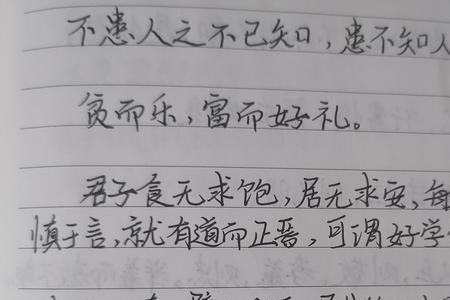 不患人之不己知，患不知人
贫而乐，富而好礼。
君子食无求饱，居无求安，
慎于言，就有道而正焉，可谓好学